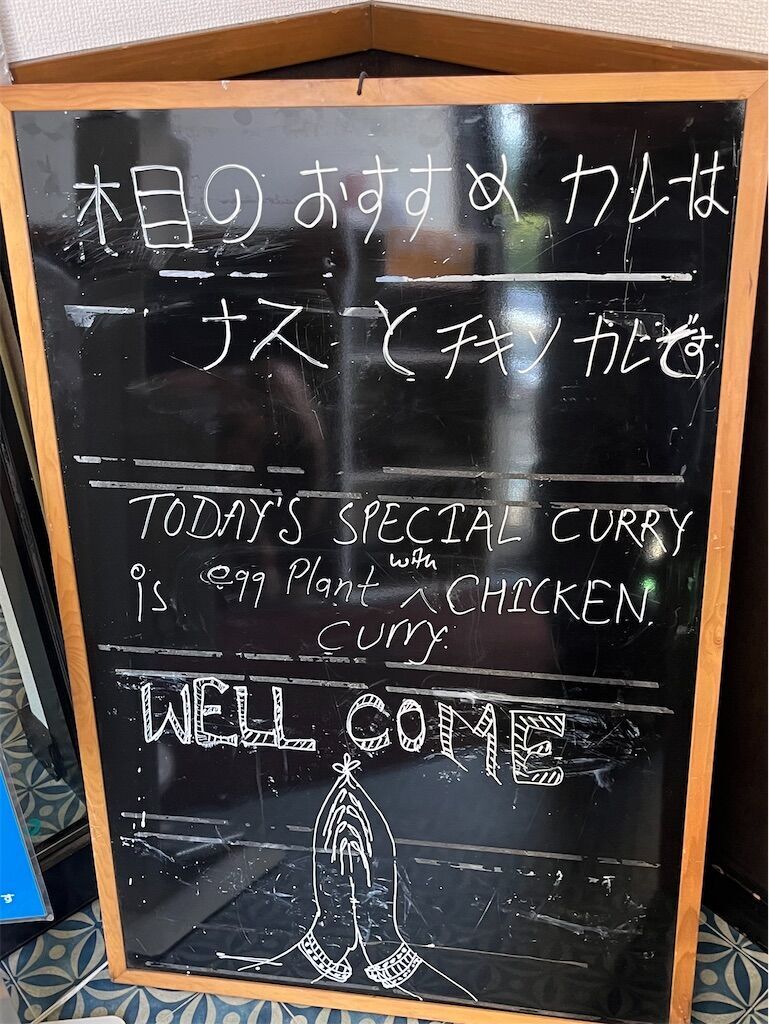 本日の おすすめ カレーは
ナス と チキン カレです.
TODAY'S SPECIAL CURRY
is egg Plant with CHICKEN.
curry.
WELL COME
す